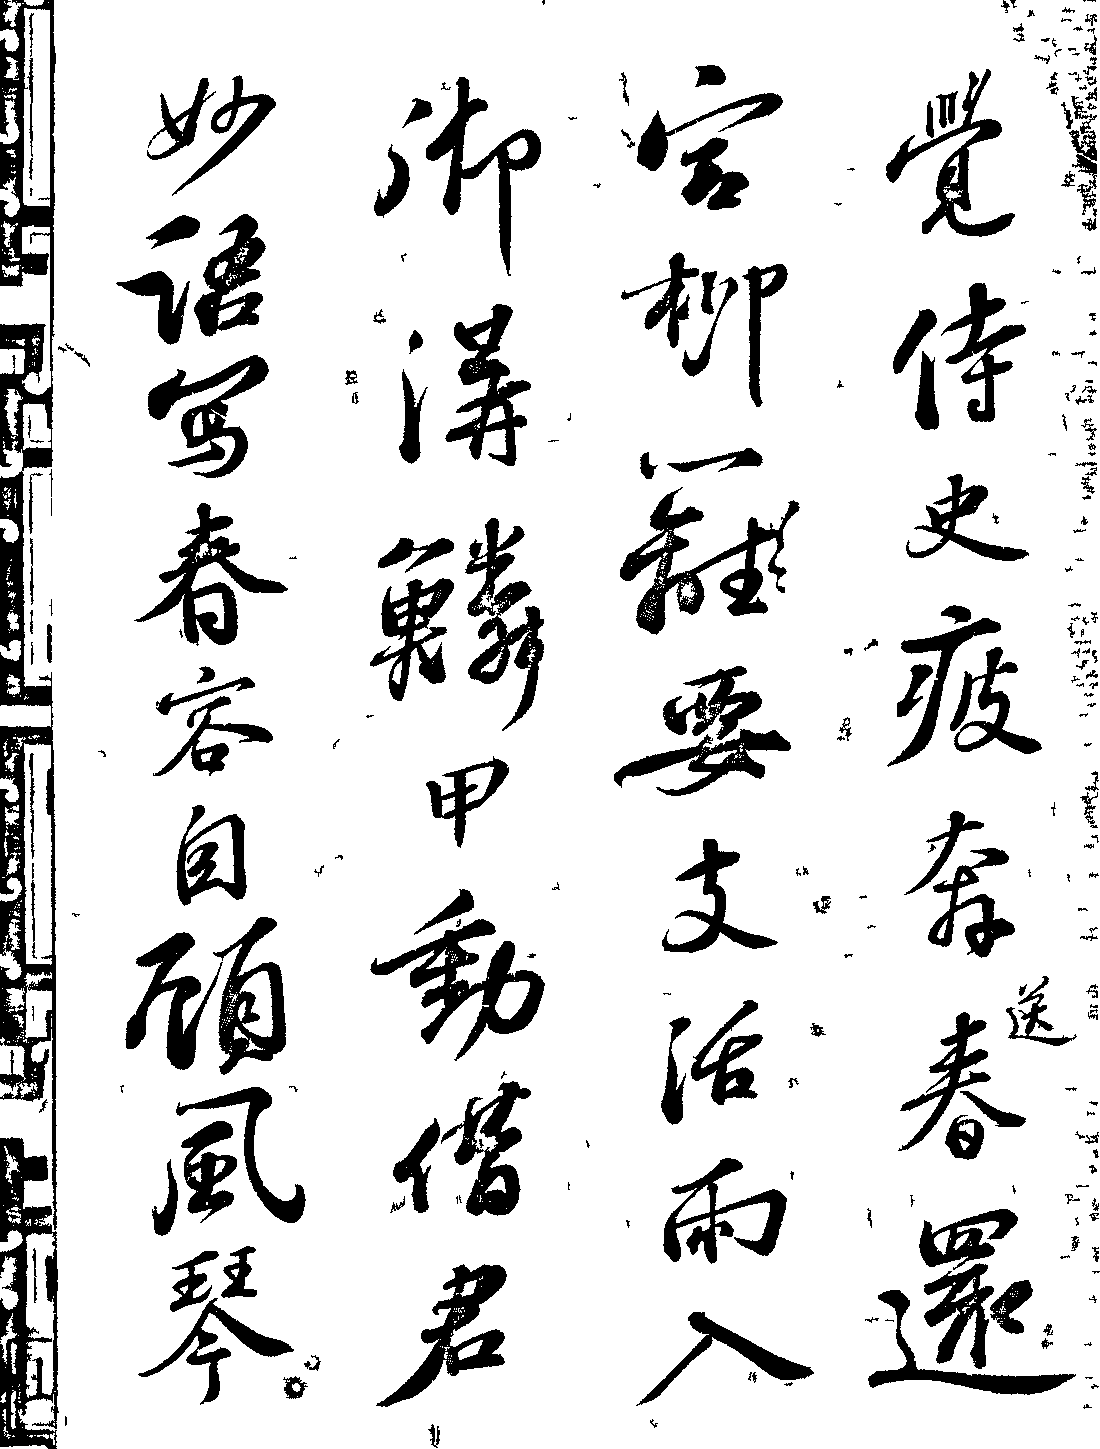 覺侍史疲奔送春還
宮柳籠要支活雨入
御溝鱗甲動借君
妙語寫春容自顧風琴